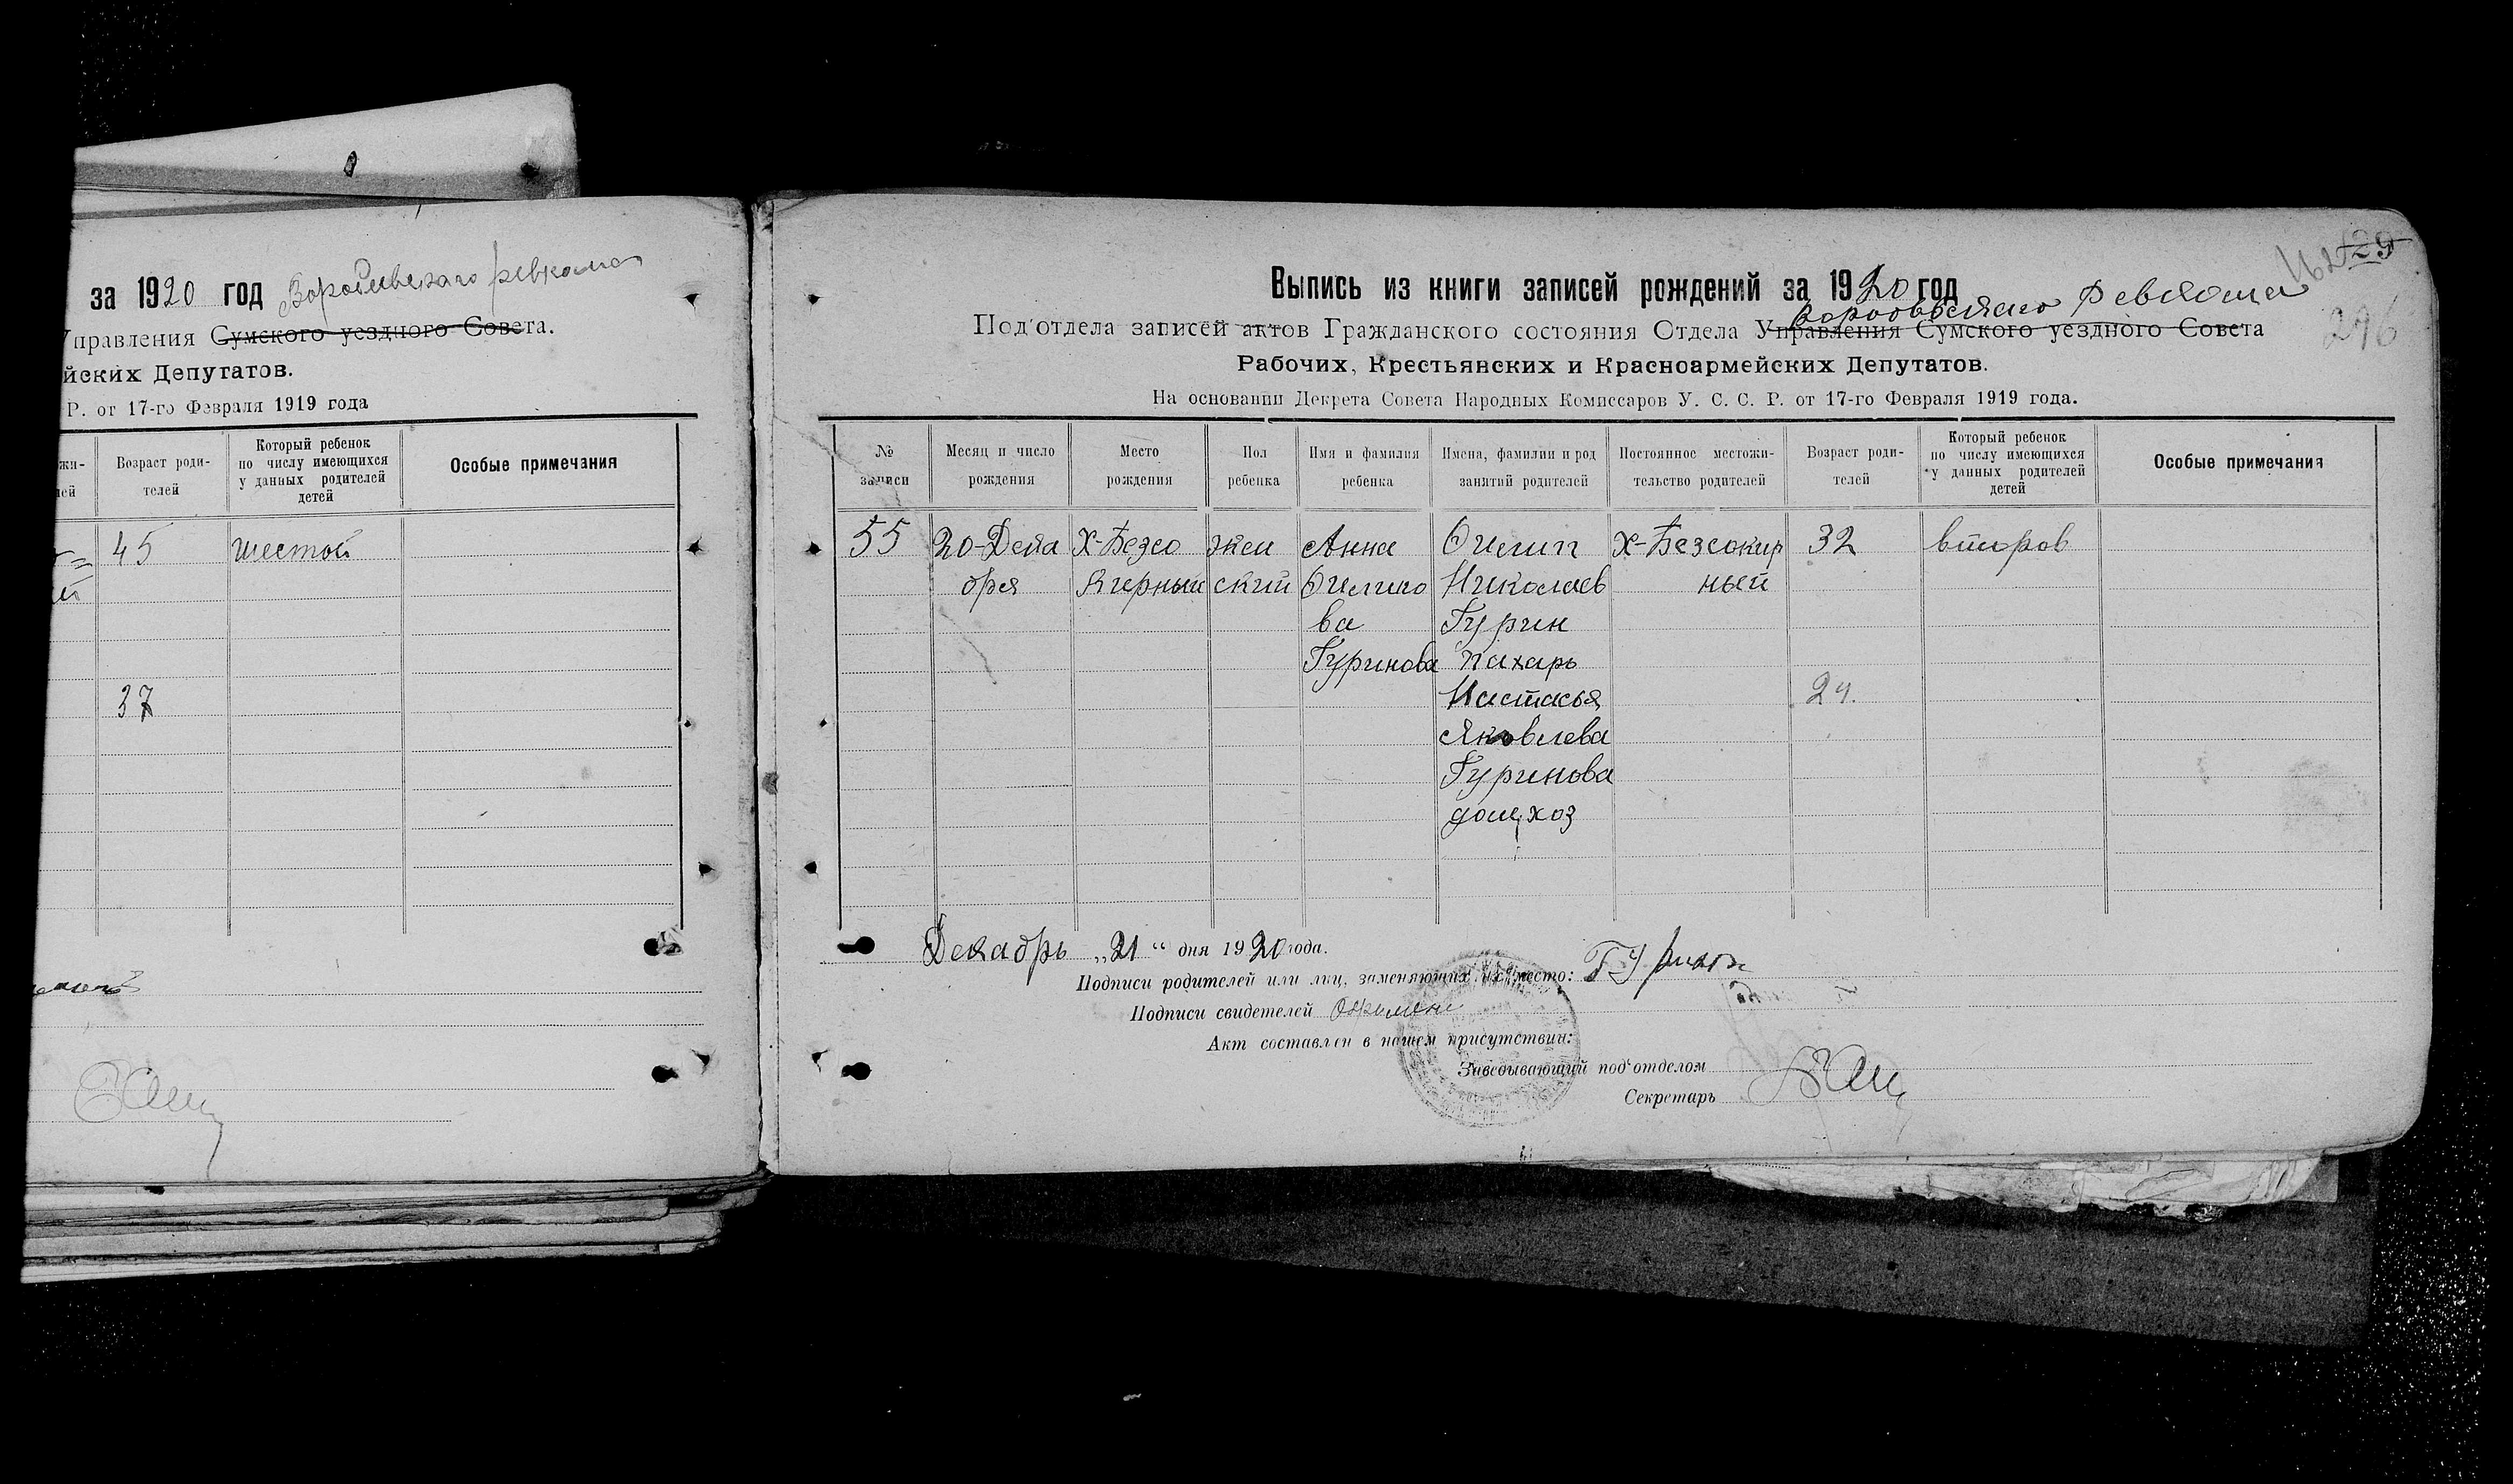 за 1920 год Воробиевскаго ревкома
Управления Сумского уездного Совета.
йских Депутатов.
Р. от 17-го Февраля 1919 года
жи-
лей
Возраст роди-
телей
Который ребенок
по числу имеющихся
у данных родителей
детей
Особые примечания
45
шестой
37
29
296
Выпись из книги записей рождений за 1920 год
Воробьевскаго Ревкома
Под'отдела записей актов Гражданского состояния Отдела Управления Сумского уездного Совета
Рабочих, Крестьянских и Красноармейских Депутатов.
На основании Декрета Совета Народных Комиссаров У. С. С. Р. от 17-го Февраля 1919 года.
№
записи
Месяц и число
рождения
Место
рождения
Пол
ребенка
Имя и фамилия
ребенка
Имена, фамилии и род
занятий родителей
Постоянное местожи-
тельство родителей
Возраст роди-
телей
Который ребенок
по числу имеющихся
у данных родителей
детей
Особые примечания
55
20-Дека
бря
Х-Безсо
кирный
жен
ский
Анна
Филипо
ва
Гуринова
Филип
Николаев
Гурин
пахарь
Настасья
Яковлева
Гуринова
дом,хоз
Х-Безсокир
ный
32
24.
второв
Декабрь „21“ дня 1920 года.
Подписи родителей или лиц, заменяющих их место: Гурин
Подписи свидетелей
Акт составлен в нашем присутствии:
Заведывающий под'отделом
Секретарь